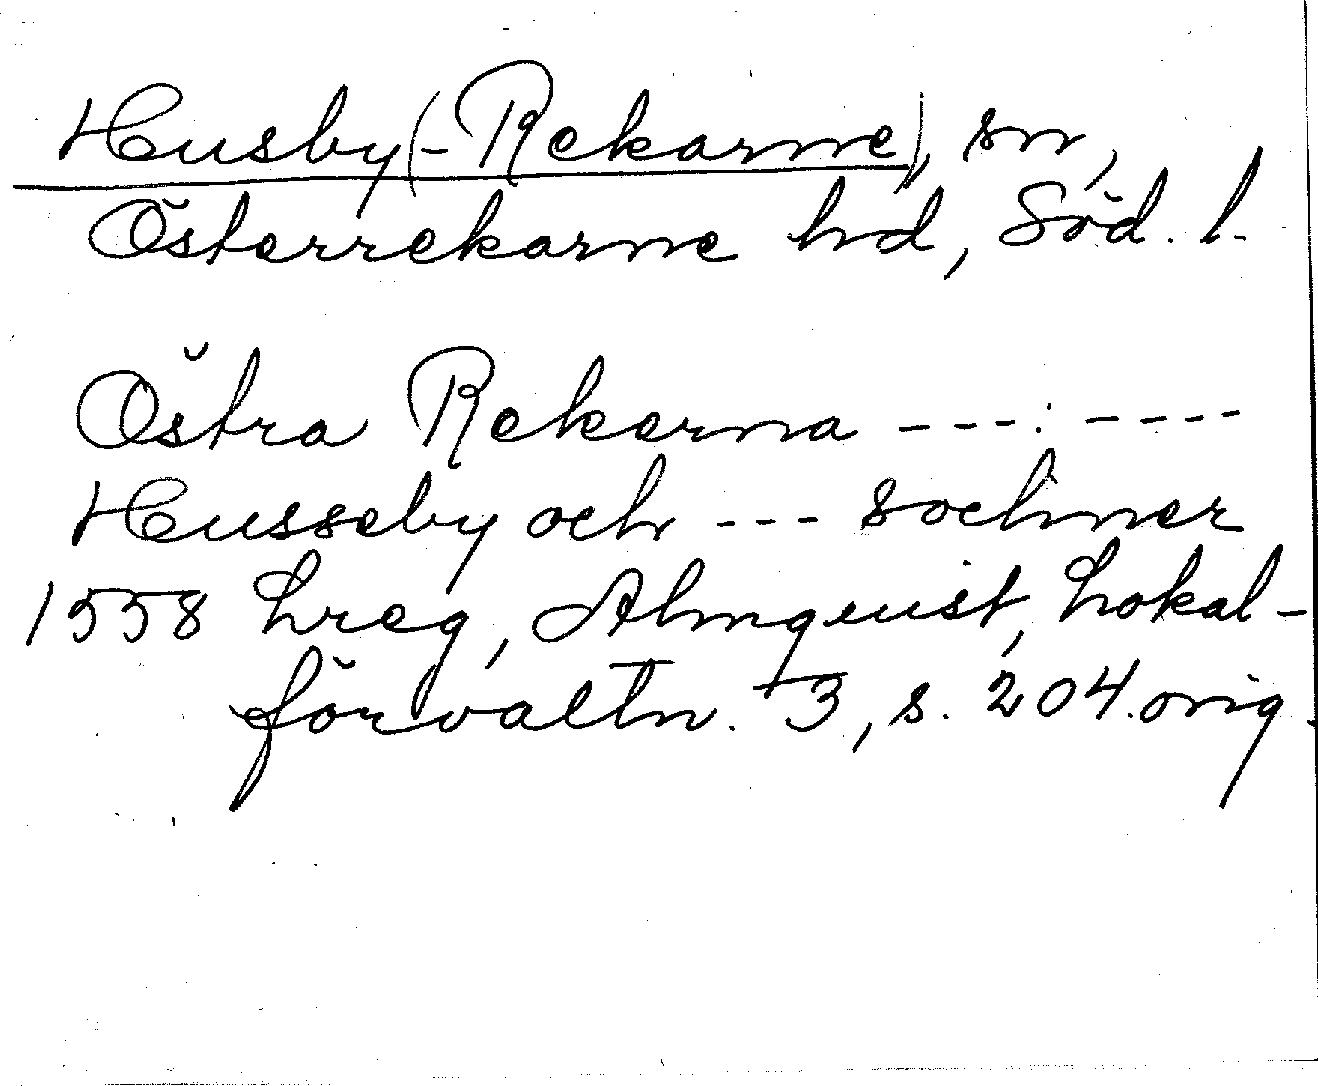 Husby(-Rekarne), sn,
Österrekarne hd, Söd. l.
Östra Rekarna ---: ----
Husseby och --- sochner
1558 Lreg, Almquist, Lokal-
förvaltn. 3, s. 204. orig.